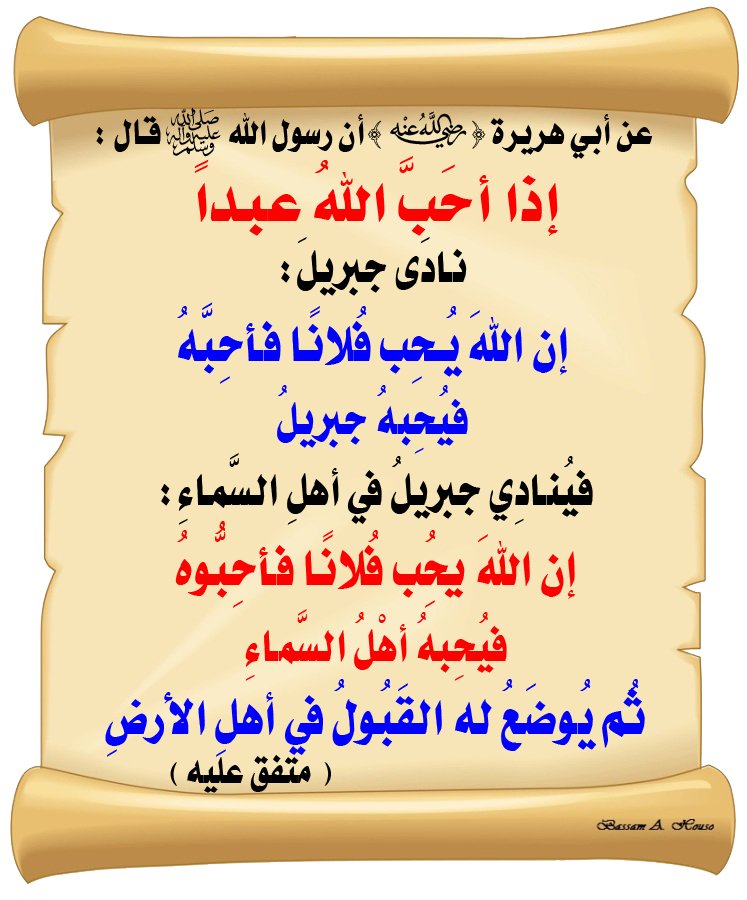 عن أبي هريرة ﴿ رضي الله عنه ﴾ أن رسول الله ﷺ قال :
إذا أحَبَّ اللهُ عبداً
نادَى جبريلَ :
إن اللهَ يُحِب فُلانًا فأحِبَّهُ
فيُحِبهُ جبريلُ
فيُنادِي جبريلُ في أهلِ السَّماءِ :
إن اللهَ يحُِب فُلانًا فأحِبُّوهُ
فيُحِبهُ أهْلُ السَّماءِ
ثُم يُوضَعُ له القَبُولُ في أهلِ الأرضِ
( متفق عليه )
Bassam A. Houso